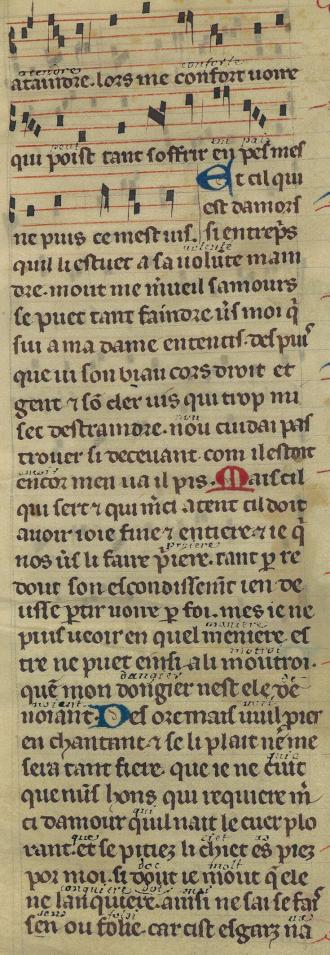 atendre conforte
ataindre. lors me confort uoire
pout en pais
qui poist tant soffrir en pes mes
Et cil qui
est damors
ne puis ce mest uis. si entrep̃s
uolente
quil li estuet a sa uolũte main
dre. mout me m̃ueil samours
se puet tant faindre. ũs moi q̃
sui a ma dame ententis. des puis
que ui son biau cors droit et
gent ⁊ sõ cler uis qui trop mi
non
set destraindre. nou cuidai pas
trouer si deceuant. com il estoit
encore
encor men ua il pis. Mais cil
qui sert ⁊ qui m̃ci atent cil doit
auoir ioie fine ⁊ entiere. ⁊ ie q̃
proiere
nos ũs li faire p̃iere. tant ꝑ re
dout son escondissem̃t ien de
usse ꝑtir uoire ꝑ foi. mes ie ne
maniere
puis ueoir en quel meniere. es
motroi
tre ne puet einsi a li moutroi.
dangier
quẽ mon dongier nest ele de
noiant uuil
noiant. Des ore mais uuil pier
en chantant. ⁊ se li plait nẽ me
quit
sera tant fiere. que ie ne cuit
que nũs hons. qui requiere m̃
qui
ci damour quil nait le cuer plo
que chiet as
rant. et se pitiez li chiet es piez
doc molt
por moi. si dout ie mout q̃ ele
conquiere doi mai
ne lan quiere. ainsi ne sai se fai
sens foloi
sen ou folie. car cist esgarz ua